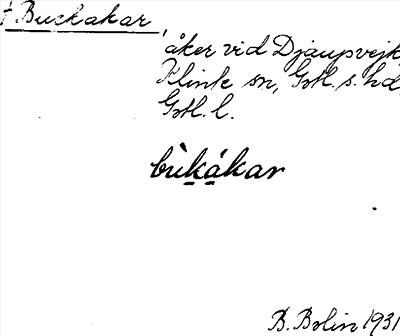 † Buckakar,
åker vid Djaupvejk,
Klinte sn, Gotl. s. hd,
Gotl. l.
bùkákar
B. Bolin 1931